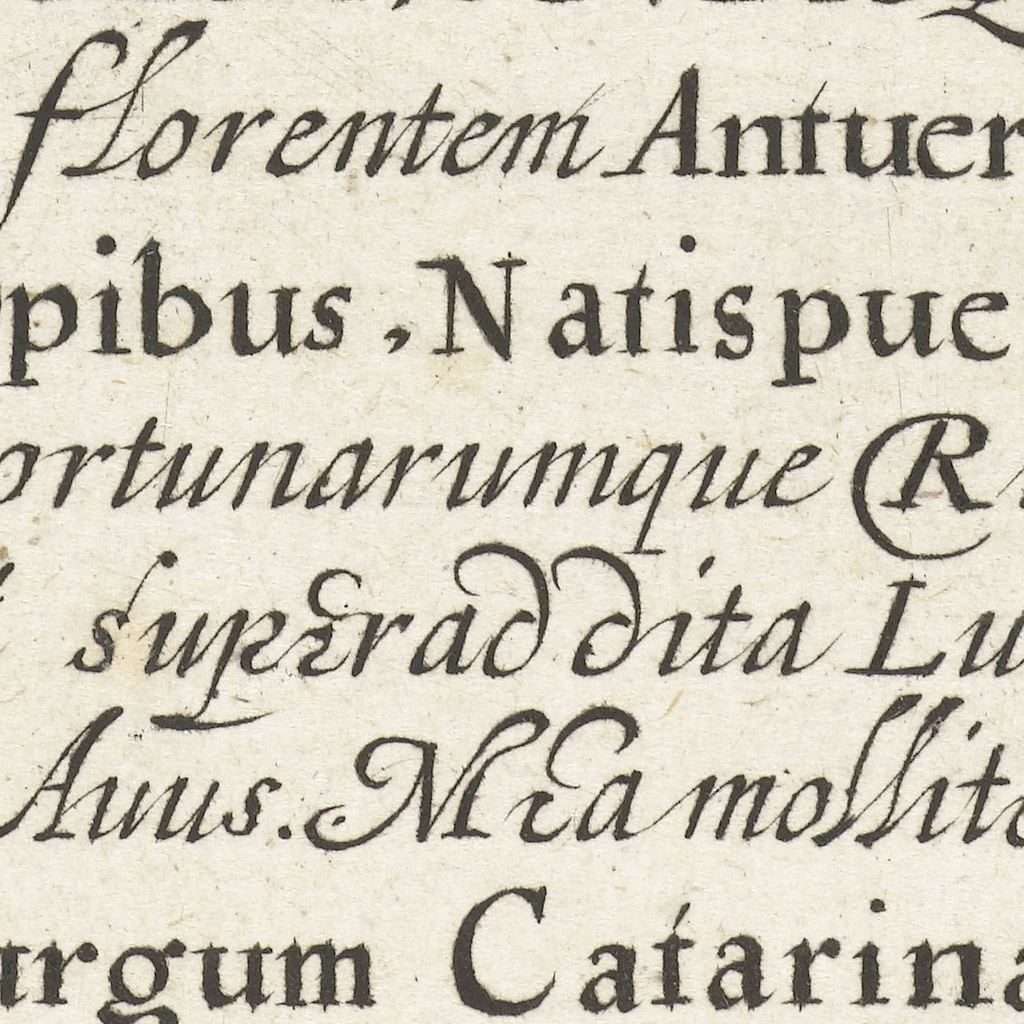 florentem Antuer
pibus, Natispue
ortunarumque R
superaddita Lu
Auus. Mea mollit
urgum Catarina